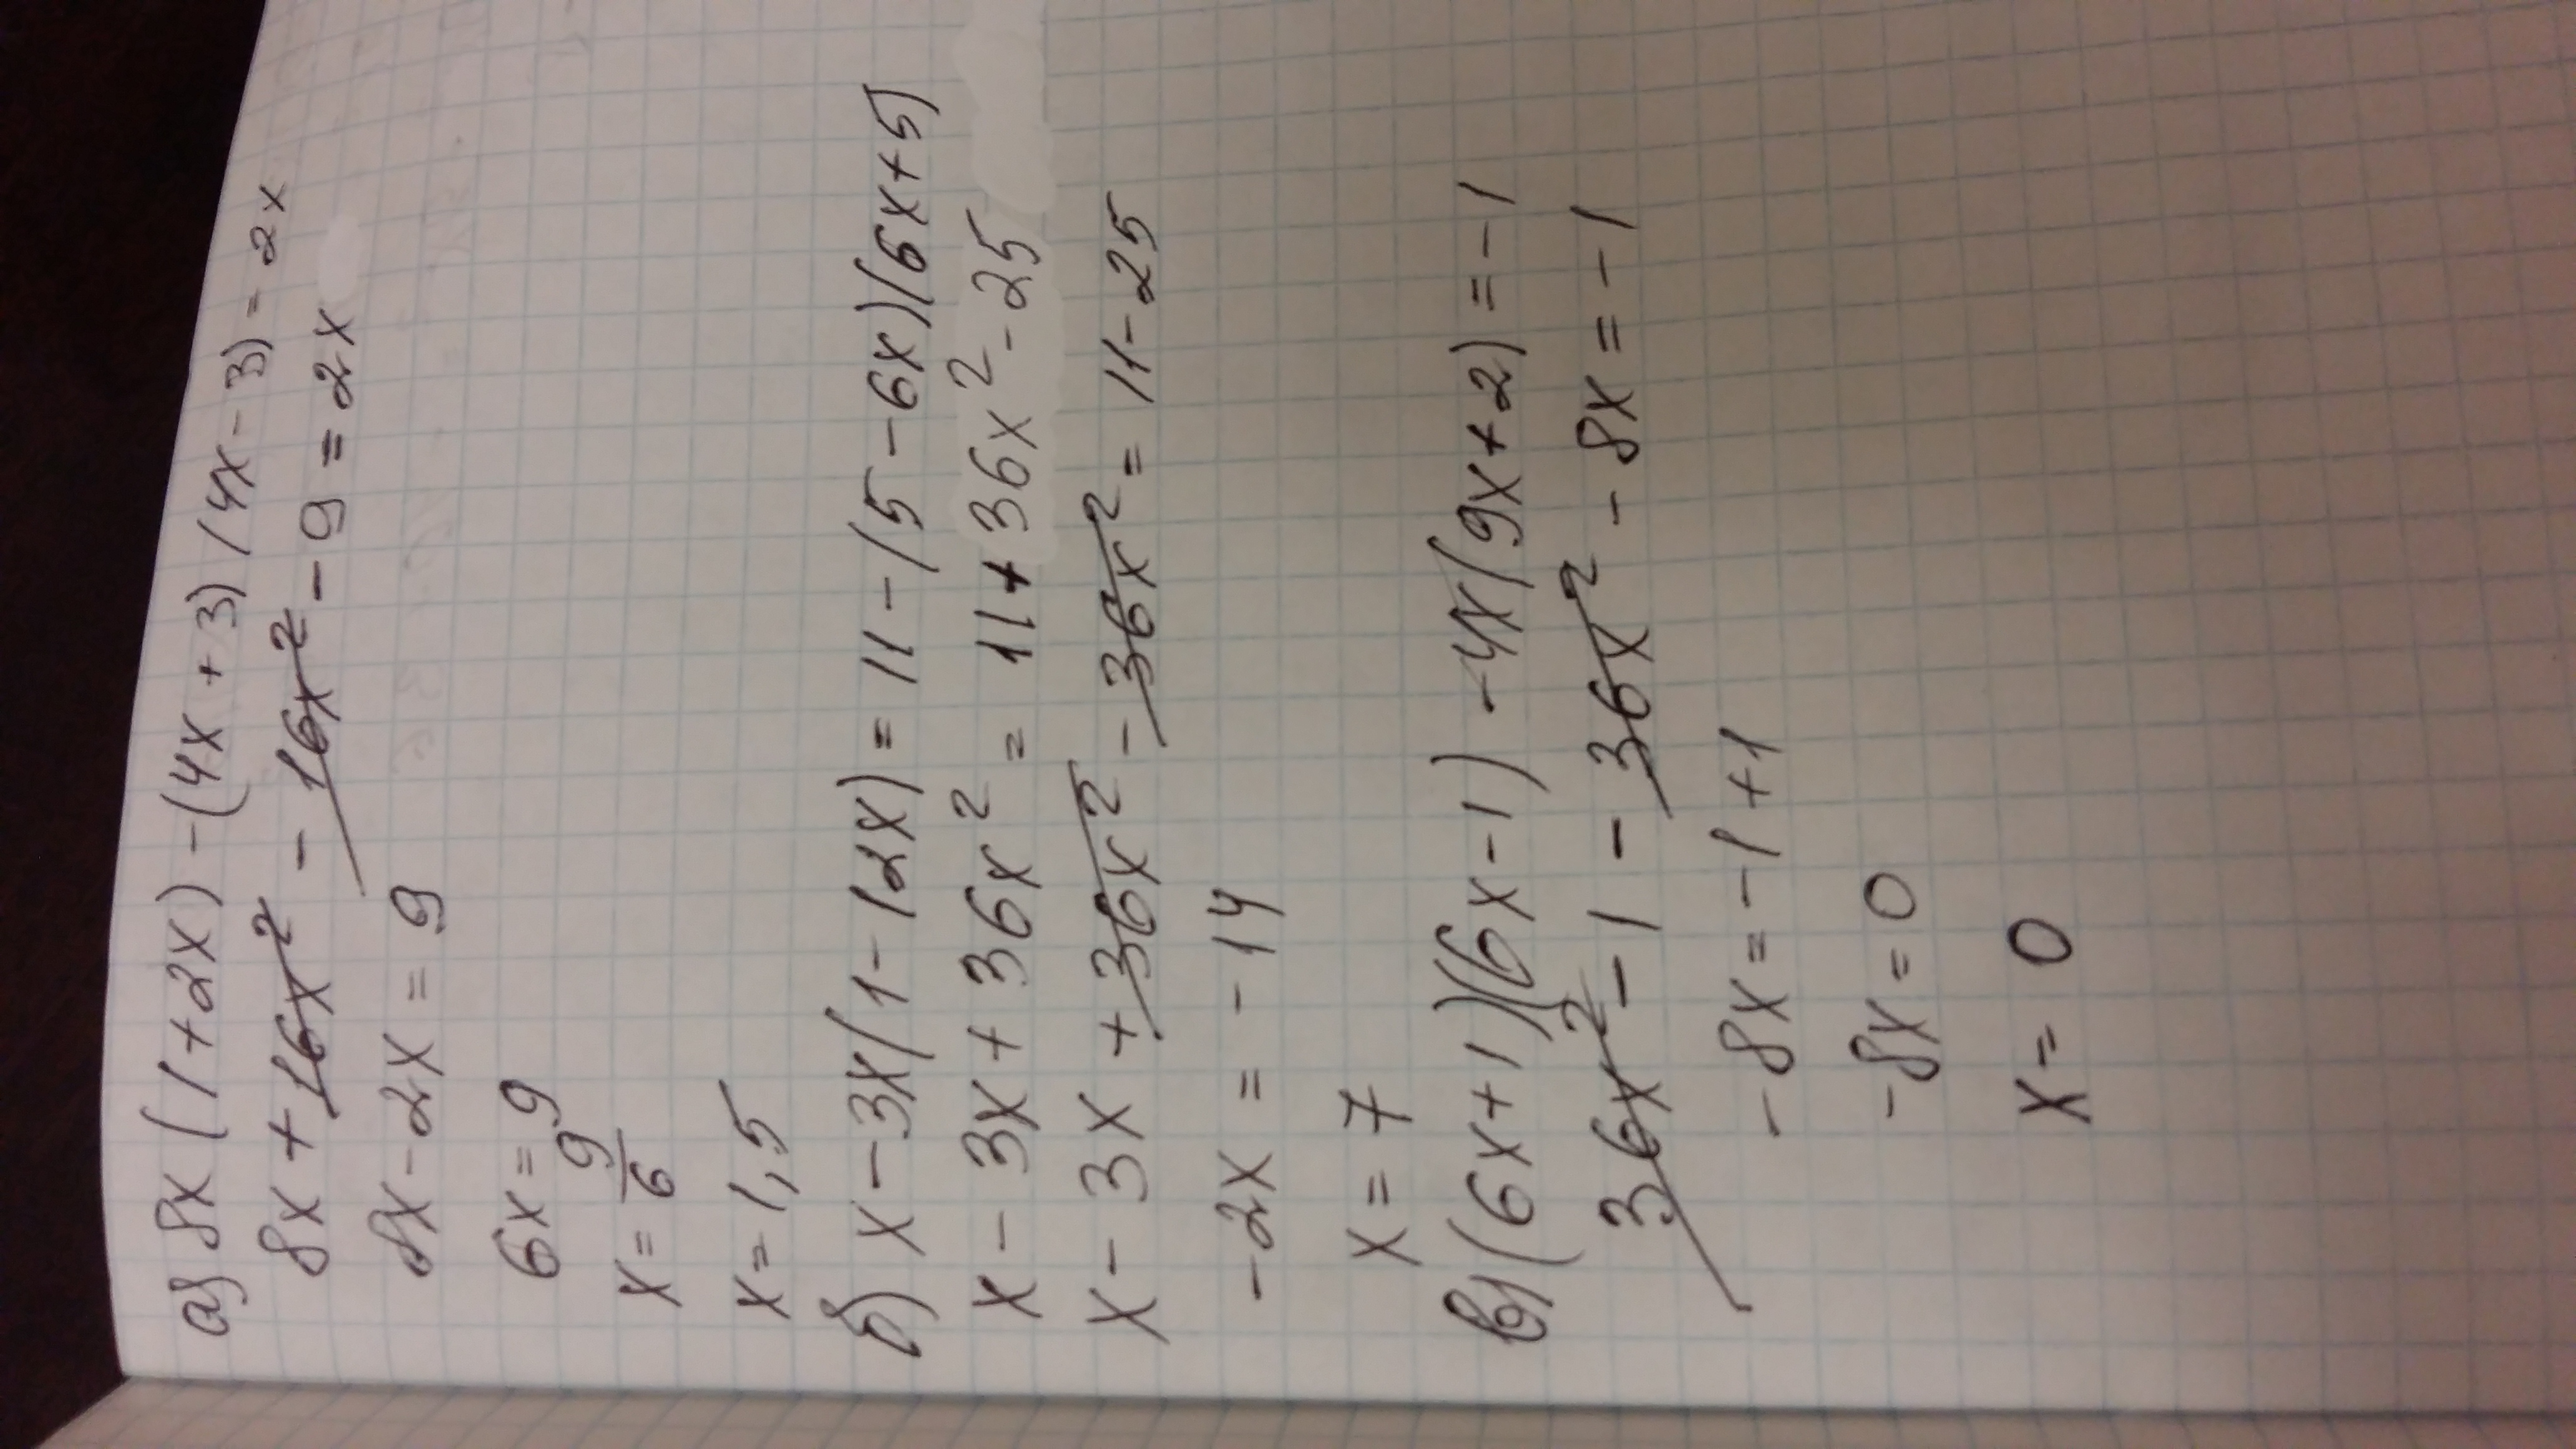 а) 8x(1+2x)-(4x+3)(4x-3)=2x
8x+16x²-16x²-9=2x
8x-2x=9
6x=9
x=9/6
x=1,5
б) x-3x(1-12x)=11-(5-6x)(6x+5)
x-3x+36x²=11+36x²-25
x-3x+36x²-36x²=11-25
-2x=-14
x=7
в) (6x+1)(6x-1)-4x(9x+2)=-1
36x²-1-36x²-8x=-1
-8x=-1+1
-8x=0
x=0